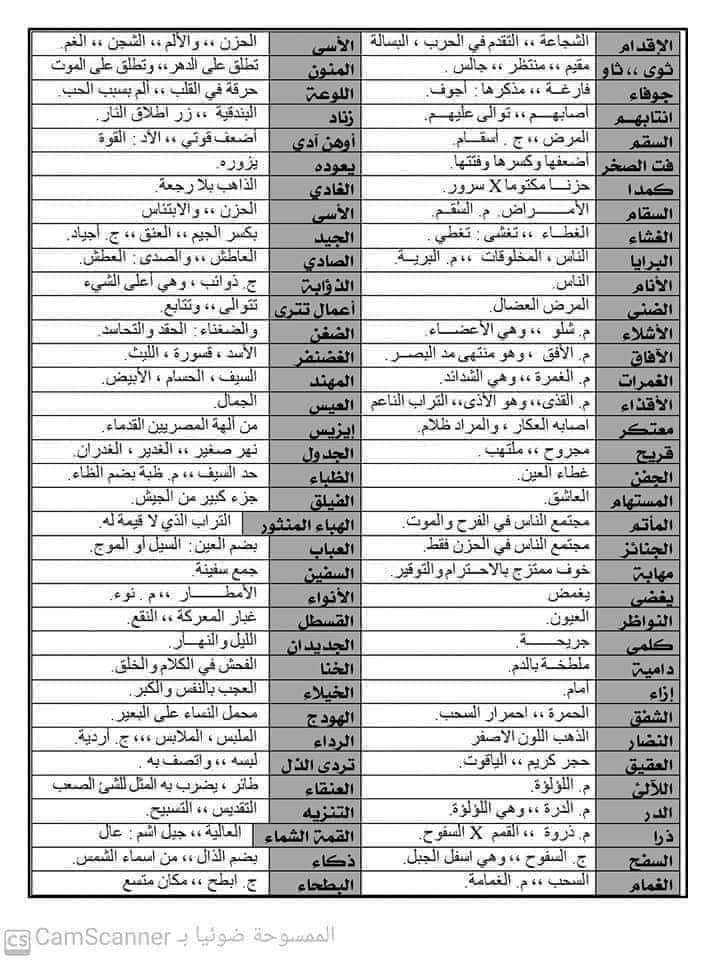 الإقدام الشجاعة ،، التقدم في الحرب ، البسالة الأسى الحزن ،، والألم ،، الشجن ،، الغم.
ثوى ،، ثاو مقيم ،، منتظر ،، جالس . المنون تطلق على الدهر،، وتطلق على الموت
جوفاء فارغة ،، مذكرها : أجوف. اللوعة حرقة في القلب ،، ألم بسبب الحب.
انتابهم أصابهم ،، توالى عليهم. زناد البندقية ،، زر اطلاق النار.
السقم المرض ،، ج . أسقام. أوهن آدي أضعف قوتي ،، الآد : القوة
فت الصخر أضعفها وكسرها وفتتها. يعوده يزوره.
كمدا حزنا مكتوما X سرور. الغادي الذاهب بلا رجعة.
السقام الأمراض. م. السُقم. الأسى الحزن ،، والابتئاس
الغشاء الغطاء ،، تغشى : تغطي . الجيد بكسر الجيم ،، العنق ،، ج. أجياد.
البرايا الناس ، المخلوقات ،، م. البرية. الصادي العاطش ،، والصدى : العطش.
الأنام الناس. الذؤابة ج. ذوائب ، وهي أعلى الشيء
الضنى المرض العضال. أعمال تترى تتوالى ،، وتتابع.
الأشلاء م. شلو ،، وهي الأعضاء. الضغن والضغناء : الحقد والتحاسد.
الآفاق م. الأفق ، وهو منتهى مد البصر. الغضنفر الأسد ، قسورة ، الليث.
الغمرات م. الغمرة ،، وهي الشدائد. المهند السيف ، الحسام ، الأبيض.
الأقذاء م. القذى،، وهو الأذى،، التراب الناعم العيس الجمال.
معتكر اصابه العكار ، والمراد ظلام. إيزيس من آلهة المصريين القدماء.
قريح مجروح ،، ملتهب . الجدول نهر صغير ،، الغدير ، الغدران.
الجفن غطاء العين. الظباء حد السيف ،، م. ظبة بضم الظاء.
المستهام العاشق. الفيلق جزء كبير من الجيش.
المأتم مجتمع الناس في الفرح والموت. الهباء المنثور التراب الذي لا قيمة له.
الجنائز مجتمع الناس في الحزن فقط. العباب بضم العين : السيل أو الموج.
مهابة خوف ممتزج بالاحترام والتوقير. السفين جمع سفينة.
يغضى يغمض الأنواء الأمطار ،، م . نوء.
النواظر العيون. القسطل غبار المعركة ،، النقع.
كلمى جريحة. الجديدان الليل والنهار.
دامية ملطخة بالدم. الخنا الفحش في الكلام والخلق.
إزاء أمام. الخيلاء العجب بالنفس والكبر.
الشفق الحمرة ،، احمرار السحب. الهودج محمل النساء على البعير.
النضار الذهب اللون الاصفر الرداء الملبس ، الملابس ،،، ج. أردية.
العقيق حجر كريم ،، الياقوت. تردى الذل لبسه ،، واتصف به .
اللآلئ م. اللؤلؤة. العنقاء طائر ، يضرب به المثل للشئ الصعب
الدر م. الدرة ،، وهي اللؤلؤة. التنزيه التقديس ،، التسبيح.
ذرا م. ذروة ،، القمم X السفوح. القمة الشماء العالية ،، جبل اشم : عال
السفح ج. السفوح ،، وهي اسفل الجبل. ذكاء بضم الذال ،، من اسماء الشمس.
الغمام السحب ،، م. الغمامة. البطحاء ج. ابطح ،، مكان متسع
CS الممسوحة ضوئيا بـ CamScanner